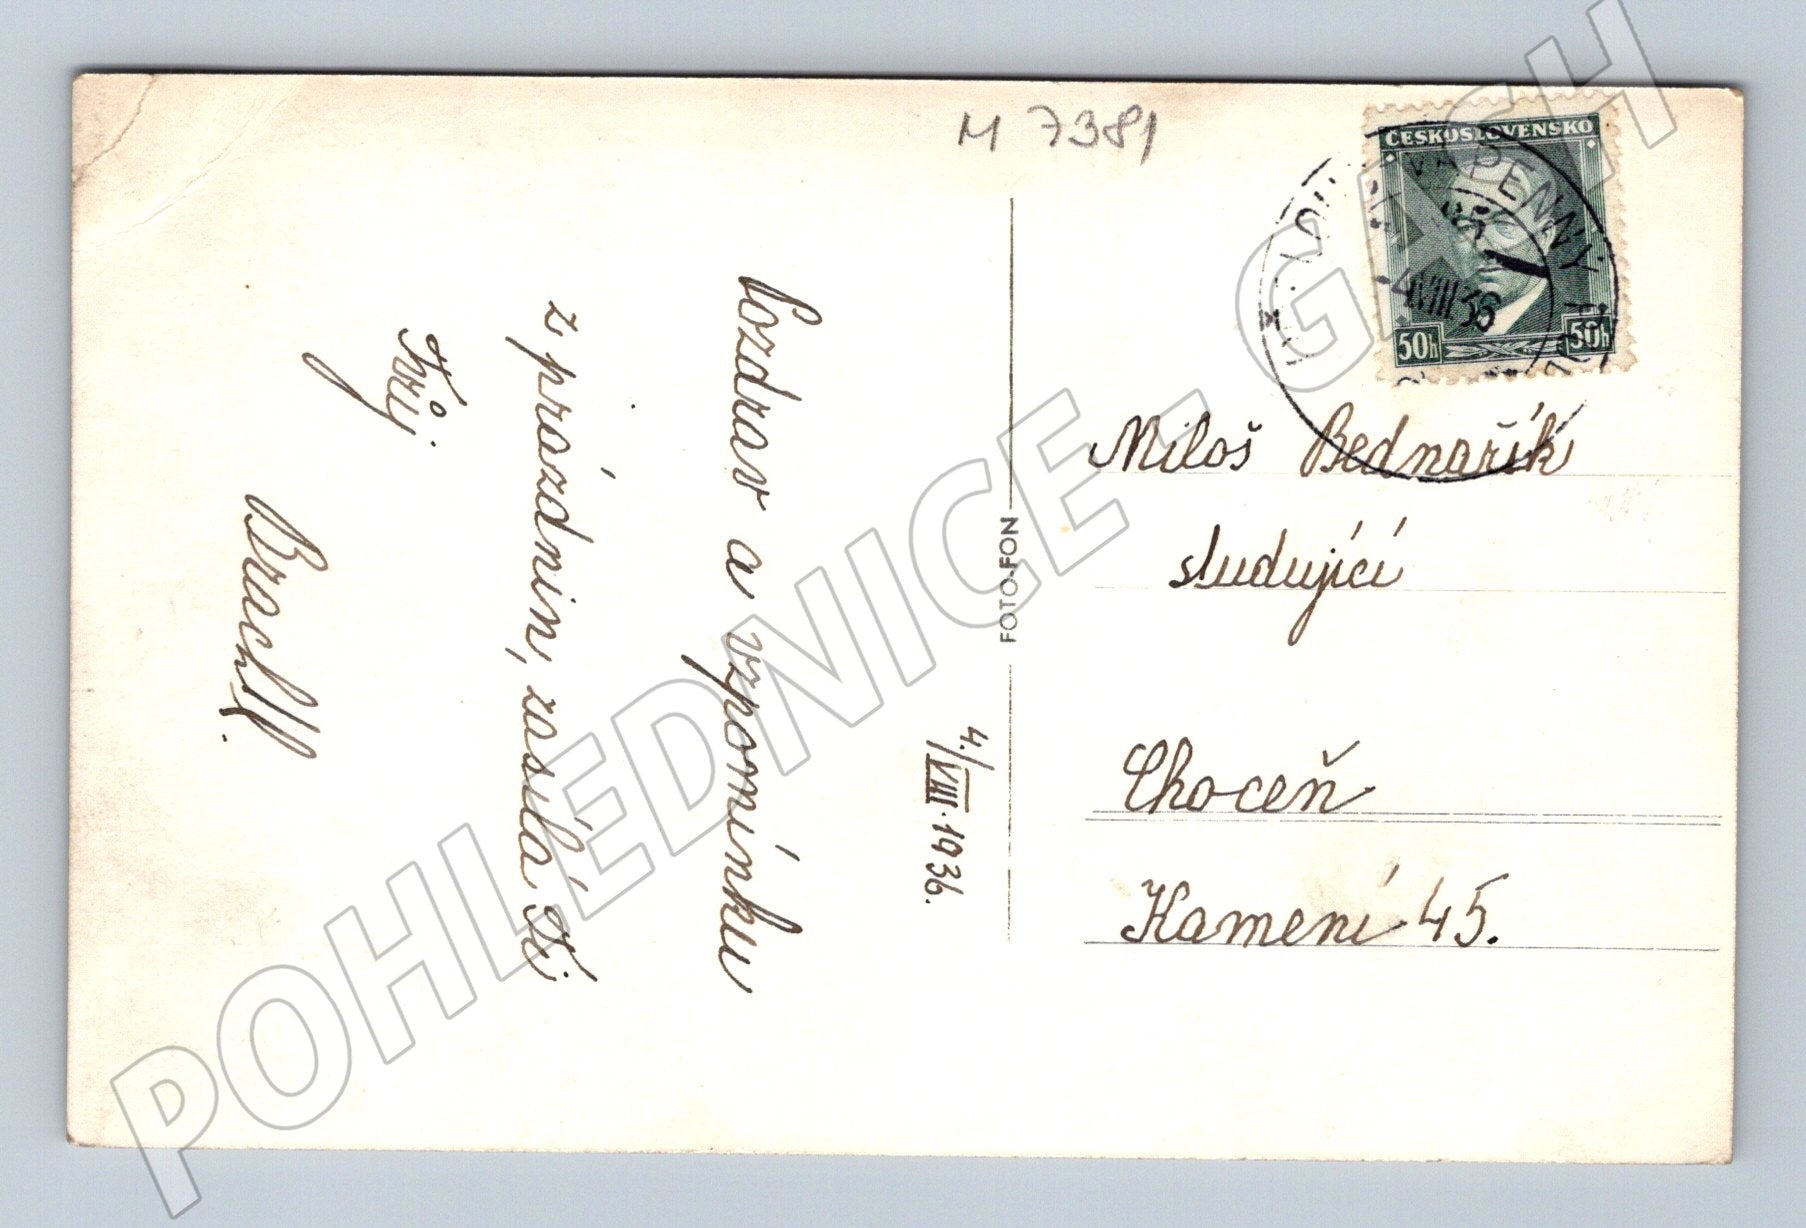 M 7381
ČESKOSLOVENSKO
50h 50h
VÁPENNÝ
-4.VIII.36
4./VIII.1936.
Pozdrav a vzpomínku
z prázdnin, zasílá Ti
Tvůj
FOTO-FON
Miloš Bednařík
studující
Choceň
Kamení 45.
POHLEDNICE - GASH